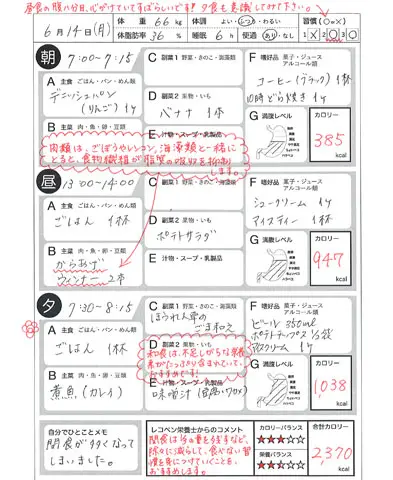 昼食の腹八分目、心がけていてすばらしいです! 夕食も意識してみて下さい。
6月14日(月)
体重 66 kg
体脂肪率 36 %
体調 よい・ふつう・わるい
睡眠 6 h
便通 あり・なし
習慣 (○or×)
1 × 2 ○ 3 ○
朝 7:00~7:15
A 主食 ごはん・パン・めん類
デニッシュパン
(りんご) 1ケ
B 主菜 肉・魚・卵・豆類
C 副菜1 野菜・きのこ・海藻類
D 副菜2 果物・いも
バナナ 1本
E 汁物・スープ・乳製品
F 嗜好品 菓子・ジュース
アルコール類
コーヒー(ブラック) 1杯
10時どら焼き 1ケ
G 満腹レベル
カロリー
385
kcal
肉類は、ごぼうやレンコン、海藻類と一緒に
とると、食物繊維が脂質の吸収を抑制
します。
昼 13:00~14:00
A 主食 ごはん・パン・めん類
ごはん 1杯
B 主菜 肉・魚・卵・豆類
からあげ
ウィンナー 2本
C 副菜1 野菜・きのこ・海藻類
D 副菜2 果物・いも
ポテトサラダ
E 汁物・スープ・乳製品
F 嗜好品 菓子・ジュース
アルコール類
シュークリーム 1ケ
アイスティー 1杯
G 満腹レベル
カロリー
947
kcal
夕 7:30~8:15
A 主食 ごはん・パン・めん類
ごはん 1杯
B 主菜 肉・魚・卵・豆類
煮魚(カレイ)
C 副菜1 野菜・きのこ・海藻類
ほうれん草の
ごま和え
D 副菜2 果物・いも
和食は、不足しがちな栄養
素がたっぷり含まれていて、
おすすめです!
E 汁物・スープ・乳製品
味噌汁
F 嗜好品 菓子・ジュース
アルコール類
ビール 350ml
ポテトチップス 1/2袋
アイスクリーム 1ケ
G 満腹レベル
カロリー
1,038
kcal
自分でひとことメモ
間食が多くなって
しまいました。
レコペン栄養士からのコメント
間食は多の量を残すなど、
徐々に減らして、食べない習
慣を身につけていくことも、
おすすめします。
カロリーバランス
栄養バランス
合計カロリー
2,370
kcal